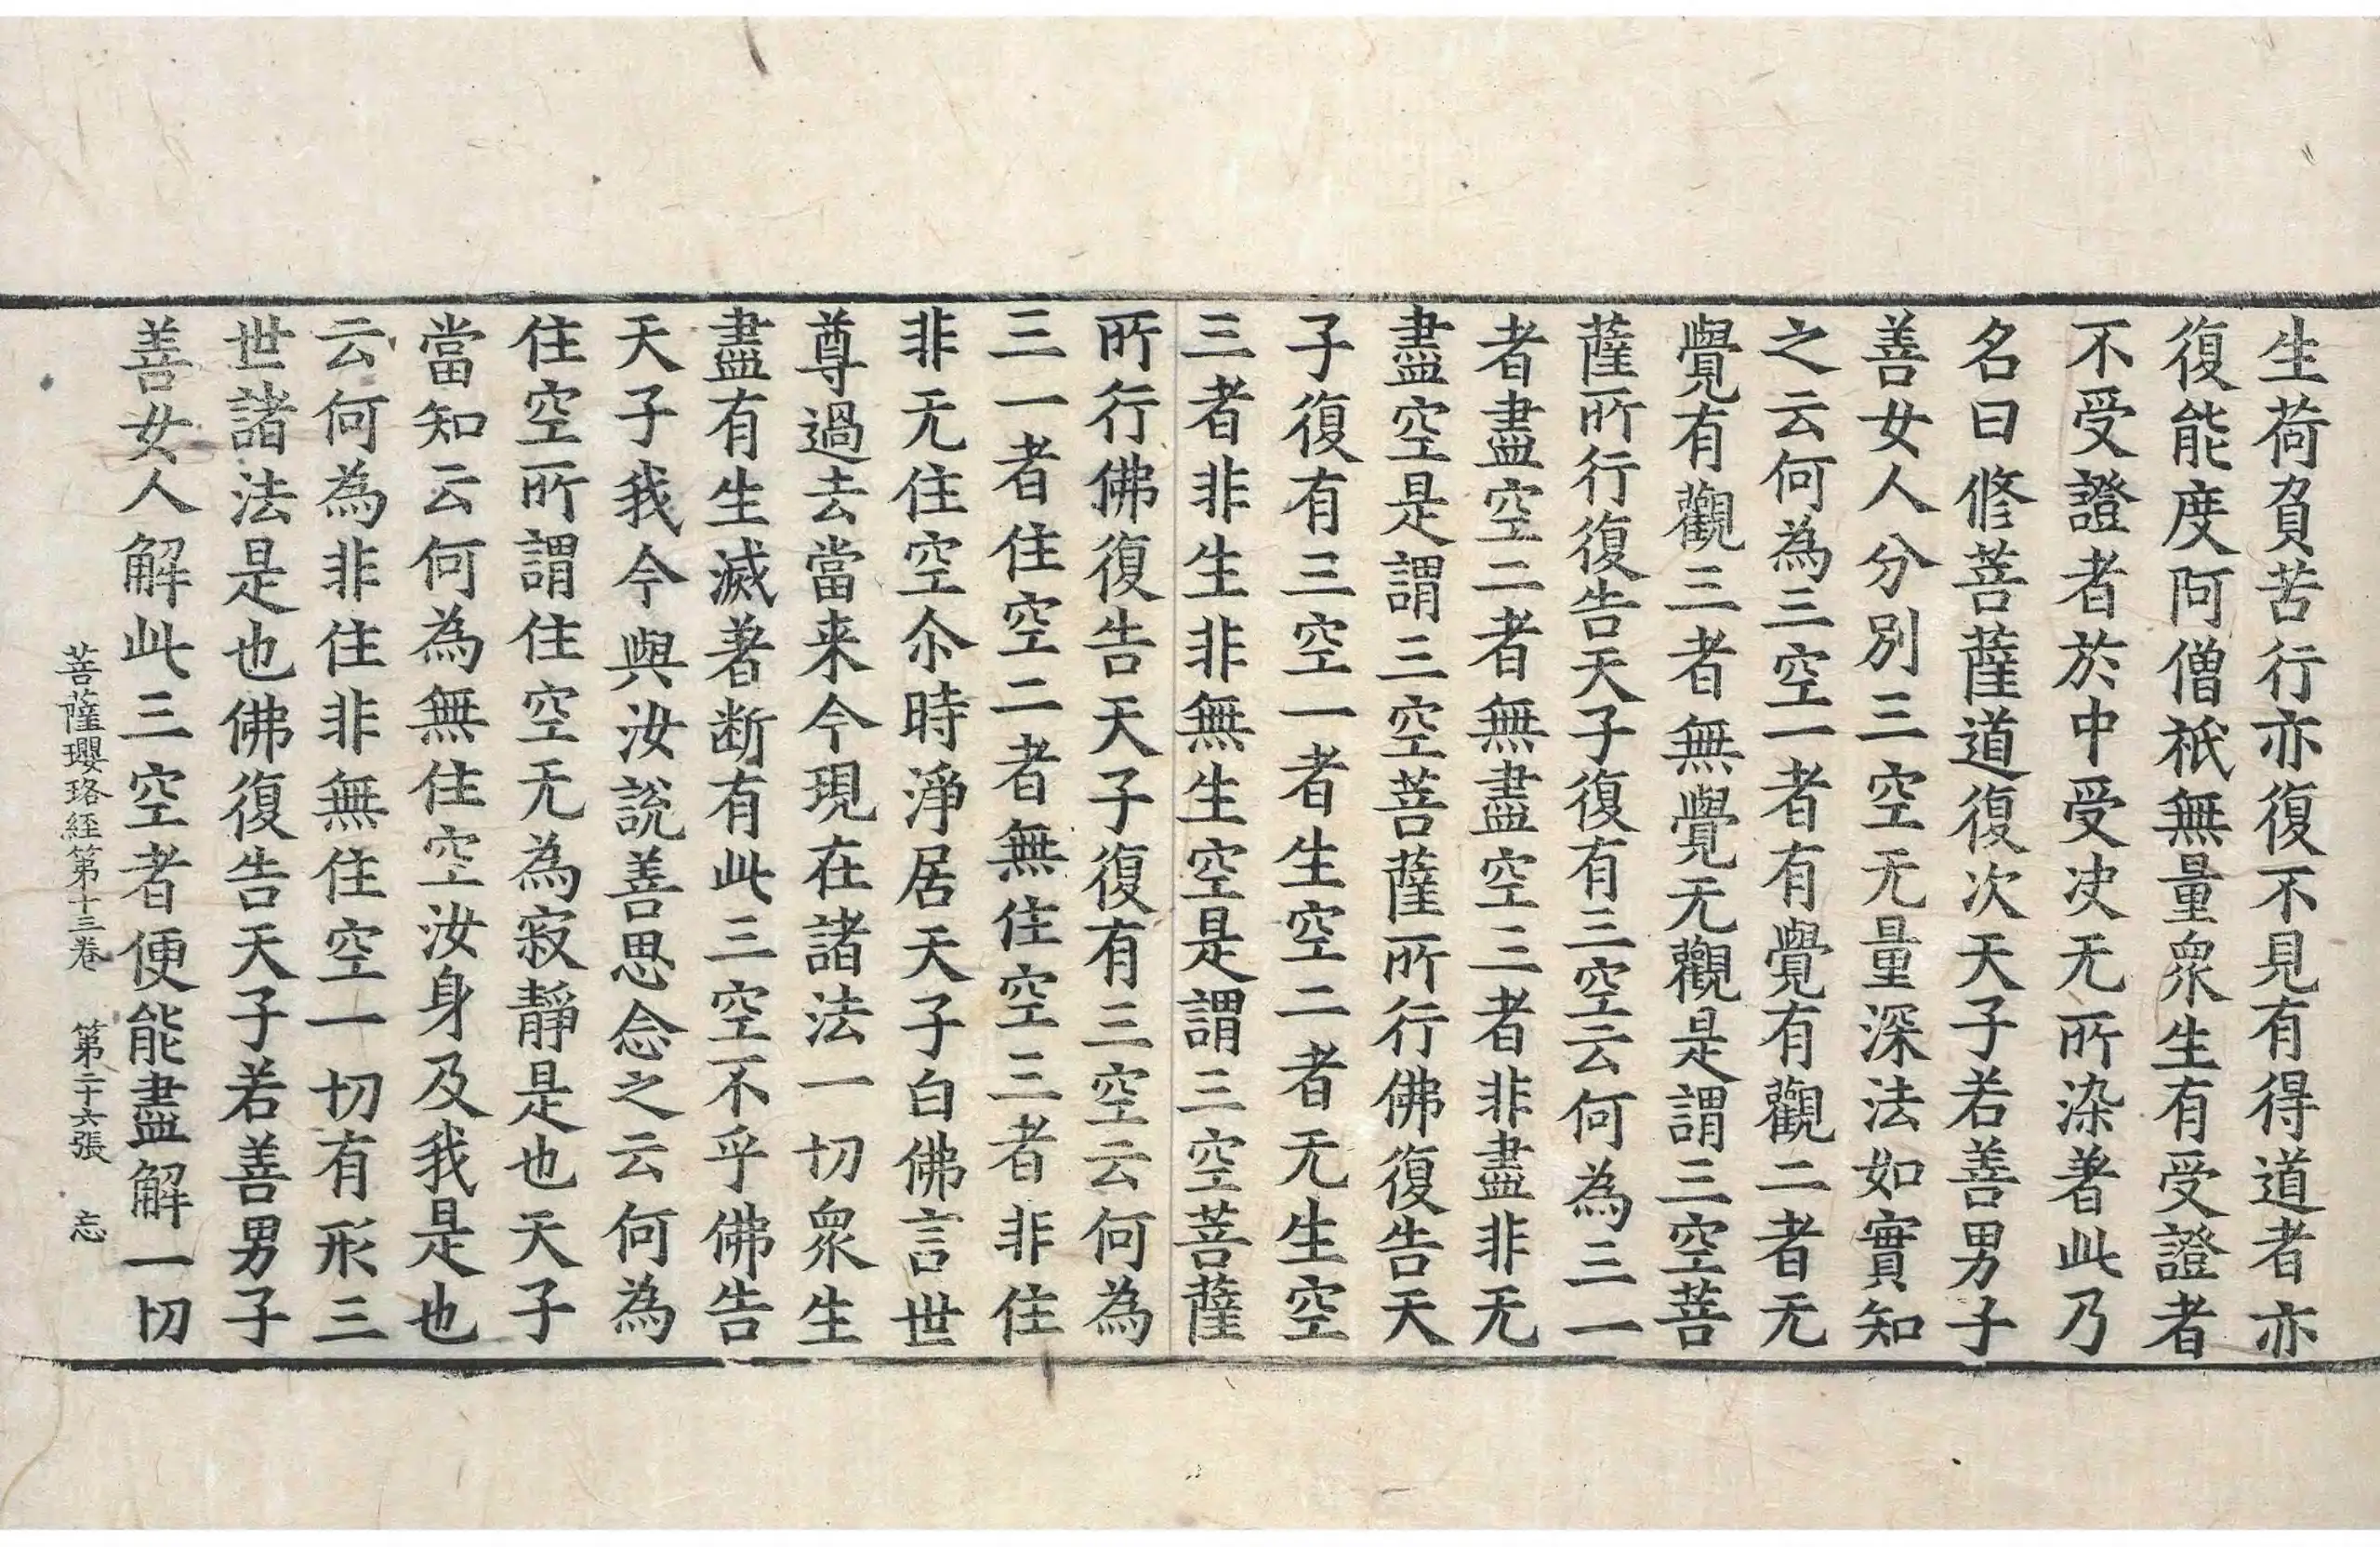 生荷負苦行亦復不見有得道者亦
復能度阿僧祇無量衆生有受證者
不受證者於中受决无所染著此乃
名曰修菩薩道復次天子若善男子
善女人分別三空无量深法如實知
之云何為三空一者有覺有觀二者无
覺有觀三者無覺无觀是謂三空菩
薩所行復告天子復有三空云何為三一
者盡空二者無盡空三者非盡非无
盡空是謂三空菩薩所行佛復告天
子復有三空一者生空二者无生空
三者非生非無生空是謂三空菩薩
所行佛復告天子復有三空云何為
三一者住空二者無住空三者非住
非无住空尒時淨居天子白佛言世
尊過去當来今現在諸法一切衆生
盡有生滅著断有此三空不乎佛告
天子我今與汝說善思念之云何為
住空所謂住空无為寂靜是也天子
當知云何為無住空汝身及我是也
云何為非住非無住空一切有形三
世諸法是也佛復告天子若善男子
善女人解此三空者便能盡解一切
菩薩瓔珞經第十三卷 第二十六張 忘